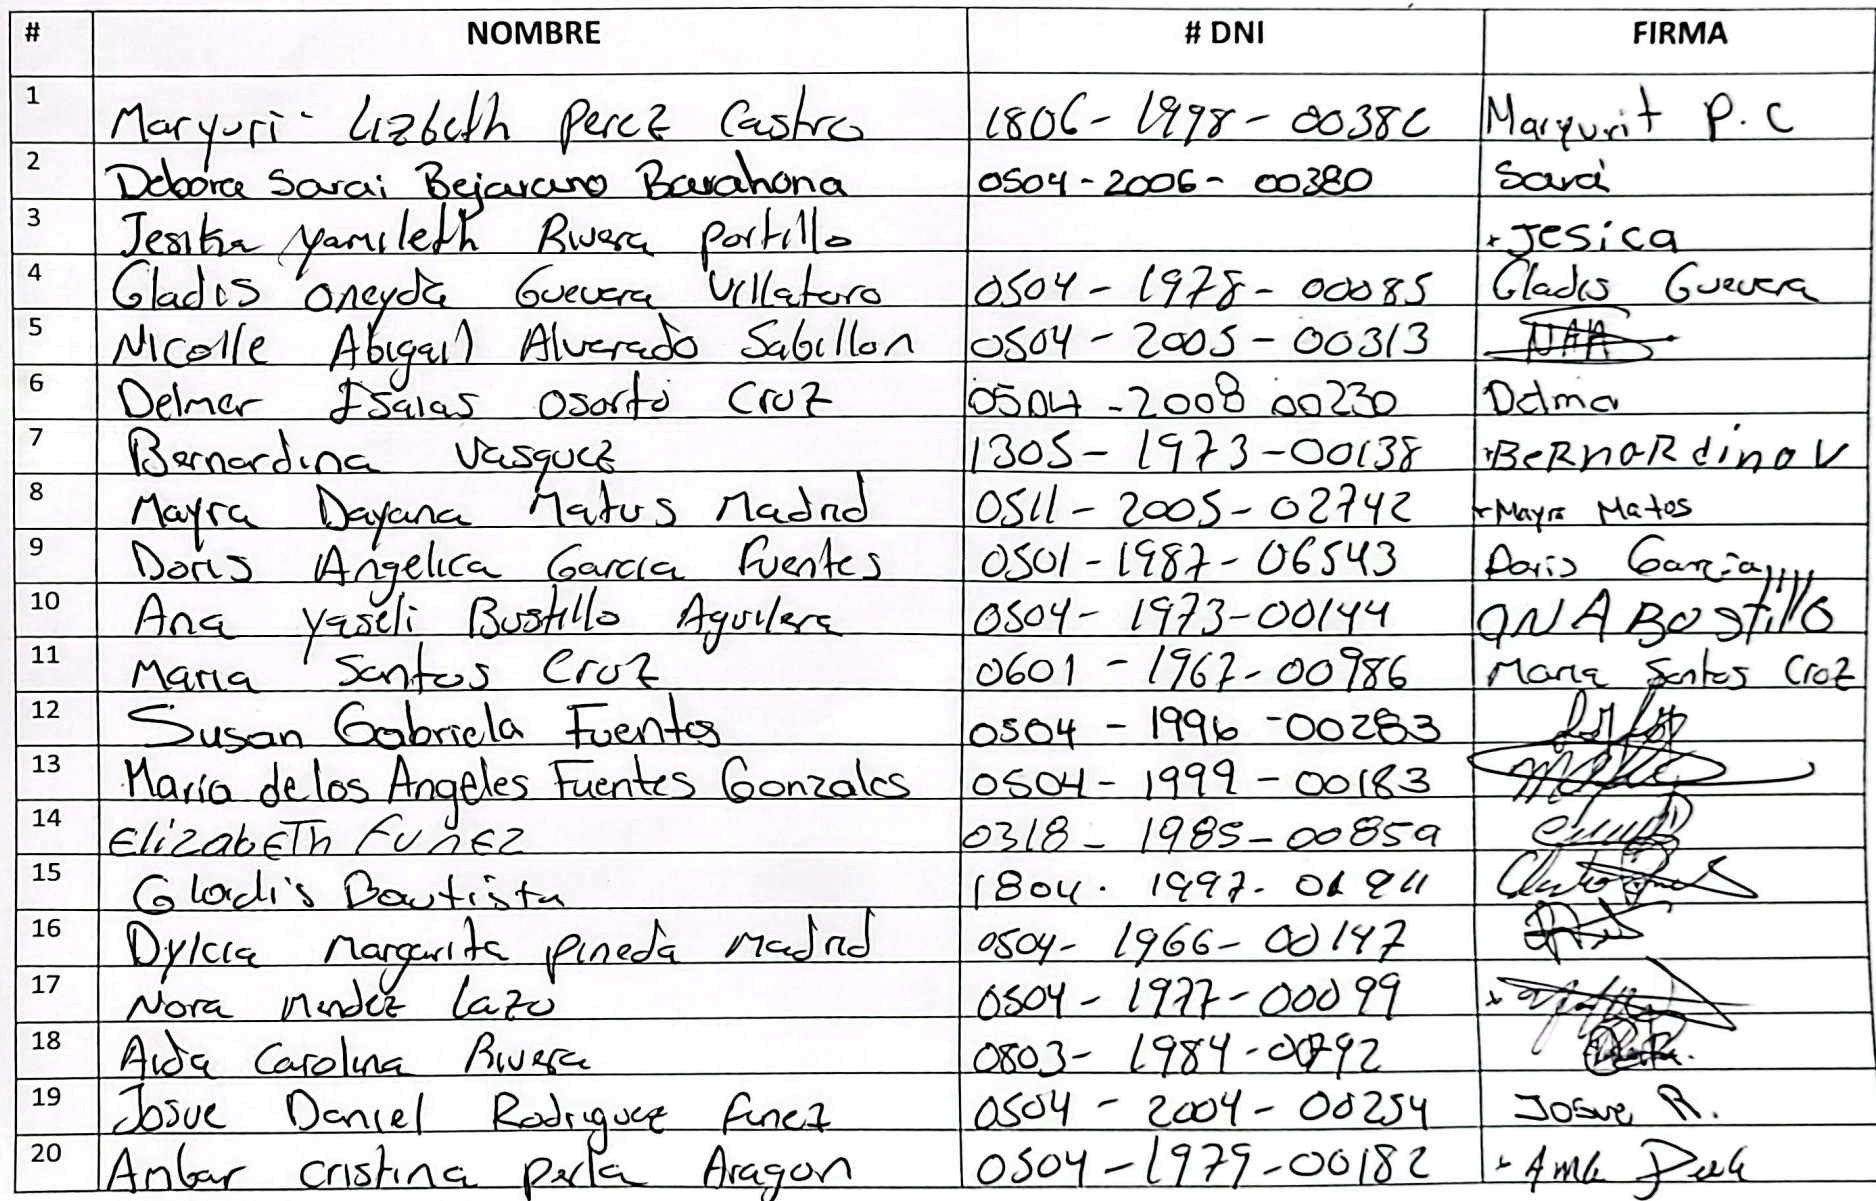 # NOMBRE # DNI FIRMA
1 Maryuri Lizbeth Perez Castro 1806-1998-00386 Maryurit P. C
2 Debora Sarai Bejarano Barahona 0504-2006-00380 Sarai
3 Jesika Yamileth Rivera Portillo Jesica
4 Gladis Oneyda Guevara Villatoro 0504-1978-00085 Gladis Guevara
5 Nicolle Abigail Alverado Sabillon 0504-2005-00313
6 Delmer Isaias Osorto Cruz 0504-2008 00230 Delmer
7 Bernardina Vasquez 1305-1973-00138 BeRnaRdina V
8 Mayra Dayana Matus Madrid 0511-2005-02742 Mayra Matos
9 Doris Angelica Garcia Fuentes 0501-1987-06543 Doris Garcia
10 Ana Yaseli Bustillo Aguilera 0504-1973-00144 ANA Bostillo
11 Maria Santos Cruz 0601-1967-00986 Maria Santos Cruz
12 Susan Gabriela Fuentes 0504-1996-00283
13 Maria de los Angeles Fuentes Gonzales 0504-1999-00183
14 ElizabETh FunEz 0318-1985-00859
15 Gladis Bautista 1804. 1997.
16 Dylcia Margarita Pineda Madrid 0504-1966-00147
17 Nora Mendez Lazo 0504-1977-00099
18 Aida Carolina Rivera 0803-1984-00792
19 Josue Daniel Rodriguez Funez 0504-2004-00254 Josue R.
20 Ambar Cristina Perla Aragon 0504-1979-00182